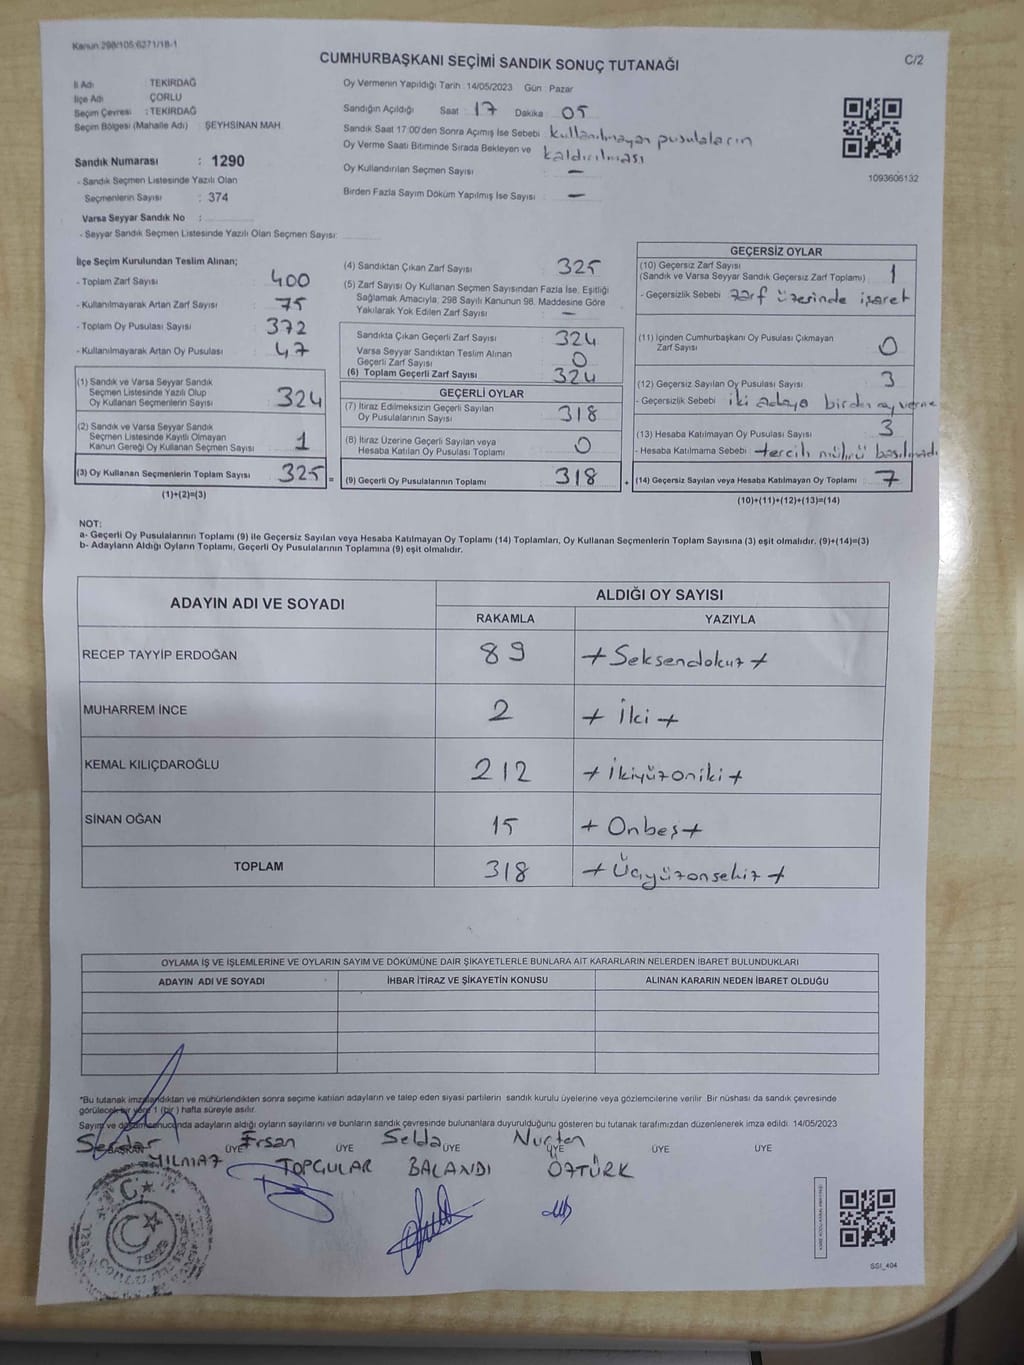 Kanun:298/105:6271/18-1
CUMHURBAŞKANI SEÇİMİ SANDIK SONUÇ TUTANAĞI
C/2
İl Adı : TEKİRDAĞ
İlçe Adı : ÇORLU
Seçim Çevresi : TEKİRDAĞ
Seçim Bölgesi (Mahalle Adı) : ŞEYHSİNAN MAH.
Sandık Numarası : 1290
- Sandık Seçmen Listesinde Yazılı Olan
Seçmenlerin Sayısı : 374
Varsa Seyyar Sandık No :
- Seyyar Sandık Seçmen Listesinde Yazılı Olan Seçmen Sayısı:
Oy Vermenin Yapıldığı Tarih : 14/05/2023 Gün : Pazar
Sandığın Açıldığı Saat 17 Dakika 05
Sandık Saat 17:00'den Sonra Açımış İse Sebebi : kullanılmayan pusulaların
Oy Verme Saati Bitiminde Sırada Bekleyen ve kaldırılması
Oy Kullandırılan Seçmen Sayısı : –
Birden Fazla Sayım Döküm Yapılmış İse Sayısı : –
1093606132
İlçe Seçim Kurulundan Teslim Alınan;
- Toplam Zarf Sayısı : 400
- Kullanılmayarak Artan Zarf Sayısı : 75
- Toplam Oy Pusulası Sayısı : 372
- Kullanılmayarak Artan Oy Pusulası : 47
(1) Sandık ve Varsa Seyyar Sandık
Seçmen Listesinde Yazılı Olup
Oy Kullanan Seçmenlerin Sayısı : 324
(2) Sandık ve Varsa Seyyar Sandık
Seçmen Listesinde Kayıtlı Olmayan
Kanun Gereği Oy Kullanan Seçmen Sayısı : 1
(3) Oy Kullanan Seçmenlerin Toplam Sayısı : 325 =
(1)+(2)=(3)
(4) Sandıktan Çıkan Zarf Sayısı : 325
(5) Zarf Sayısı Oy Kullanan Seçmen Sayısından Fazla İse, Eşitliği
Sağlamak Amacıyla, 298 Sayılı Kanunun 98. Maddesine Göre
Yakılarak Yok Edilen Zarf Sayısı : –
Sandıkta Çıkan Geçerli Zarf Sayısı : 324
Varsa Seyyar Sandıktan Teslim Alınan
Geçerli Zarf Sayısı : 0
(6) Toplam Geçerli Zarf Sayısı : 324
GEÇERLİ OYLAR
(7) İtiraz Edilmeksizin Geçerli Sayılan
Oy Pusulalarının Sayısı : 318
(8) İtiraz Üzerine Geçerli Sayılan veya
Hesaba Katılan Oy Pusulası Toplamı : 0
(9) Geçerli Oy Pusulalarının Toplamı : 318 +
GEÇERSİZ OYLAR
(10) Geçersiz Zarf Sayısı
(Sandık ve Varsa Seyyar Sandık Geçersiz Zarf Toplamı) : 1
- Geçersizlik Sebebi : zarf üzerinde işaret
(11) İçinden Cumhurbaşkanı Oy Pusulası Çıkmayan
Zarf Sayısı : 0
(12) Geçersiz Sayılan Oy Pusulası Sayısı : 3
- Geçersizlik Sebebi : iki adaya birden oy verme
(13) Hesaba Katılmayan Oy Pusulası Sayısı : 3
- Hesaba Katılmama Sebebi : tercih mührü basılmadı
(14) Geçersiz Sayılan veya Hesaba Katılmayan Oy Toplamı : 7
(10)+(11)+(12)+(13)=(14)
NOT:
a- Geçerli Oy Pusulalarının Toplamı (9) ile Geçersiz Sayılan veya Hesaba Katılmayan Oy Toplamı (14) Toplamları, Oy Kullanan Seçmenlerin Toplam Sayısına (3) eşit olmalıdır. (9)+(14)=(3)
b- Adayların Aldığı Oyların Toplamı, Geçerli Oy Pusulalarının Toplamına (9) eşit olmalıdır.
ADAYIN ADI VE SOYADI
ALDIĞI OY SAYISI
RAKAMLA YAZIYLA
RECEP TAYYİP ERDOĞAN 89 +Seksendokuz+
MUHARREM İNCE 2 + İki +
KEMAL KILIÇDAROĞLU 212 +İkiyüzoniki+
SİNAN OĞAN 15 + Onbeş+
TOPLAM 318 +Üçyüzonsekiz+
OYLAMA İŞ VE İŞLEMLERİNE VE OYLARIN SAYIM VE DÖKÜMÜNE DAİR ŞİKAYETLERLE BUNLARA AİT KARARLARIN NELERDEN İBARET BULUNDUKLARI
ADAYIN ADI VE SOYADI İHBAR İTİRAZ VE ŞİKAYETİN KONUSU ALINAN KARARIN NEDEN İBARET OLDUĞU
*Bu tutanak imzalandıktan ve mühürlendikten sonra seçime katılan adayların ve talep eden siyasi partilerin sandık kurulu üyelerine veya gözlemcilerine verilir. Bir nüshası da sandık çevresinde
görülecek bir yere 1 (bir) hafta süreyle asılır.
Sayım ve döküm sonucunda adayların aldığı oyların sayılarını ve bunların sandık çevresinde bulunanlara duyurulduğunu gösteren bu tutanak tarafımızdan düzenlenerek imza edildi. 14/05/2023
Serdar Ersan Selda Nurten
BAŞKAN ÜYE ÜYE ÜYE ÜYE ÜYE ÜYE
YILMAZ TOPÇULAR BALANDI ÖZTÜRK
SSI_404